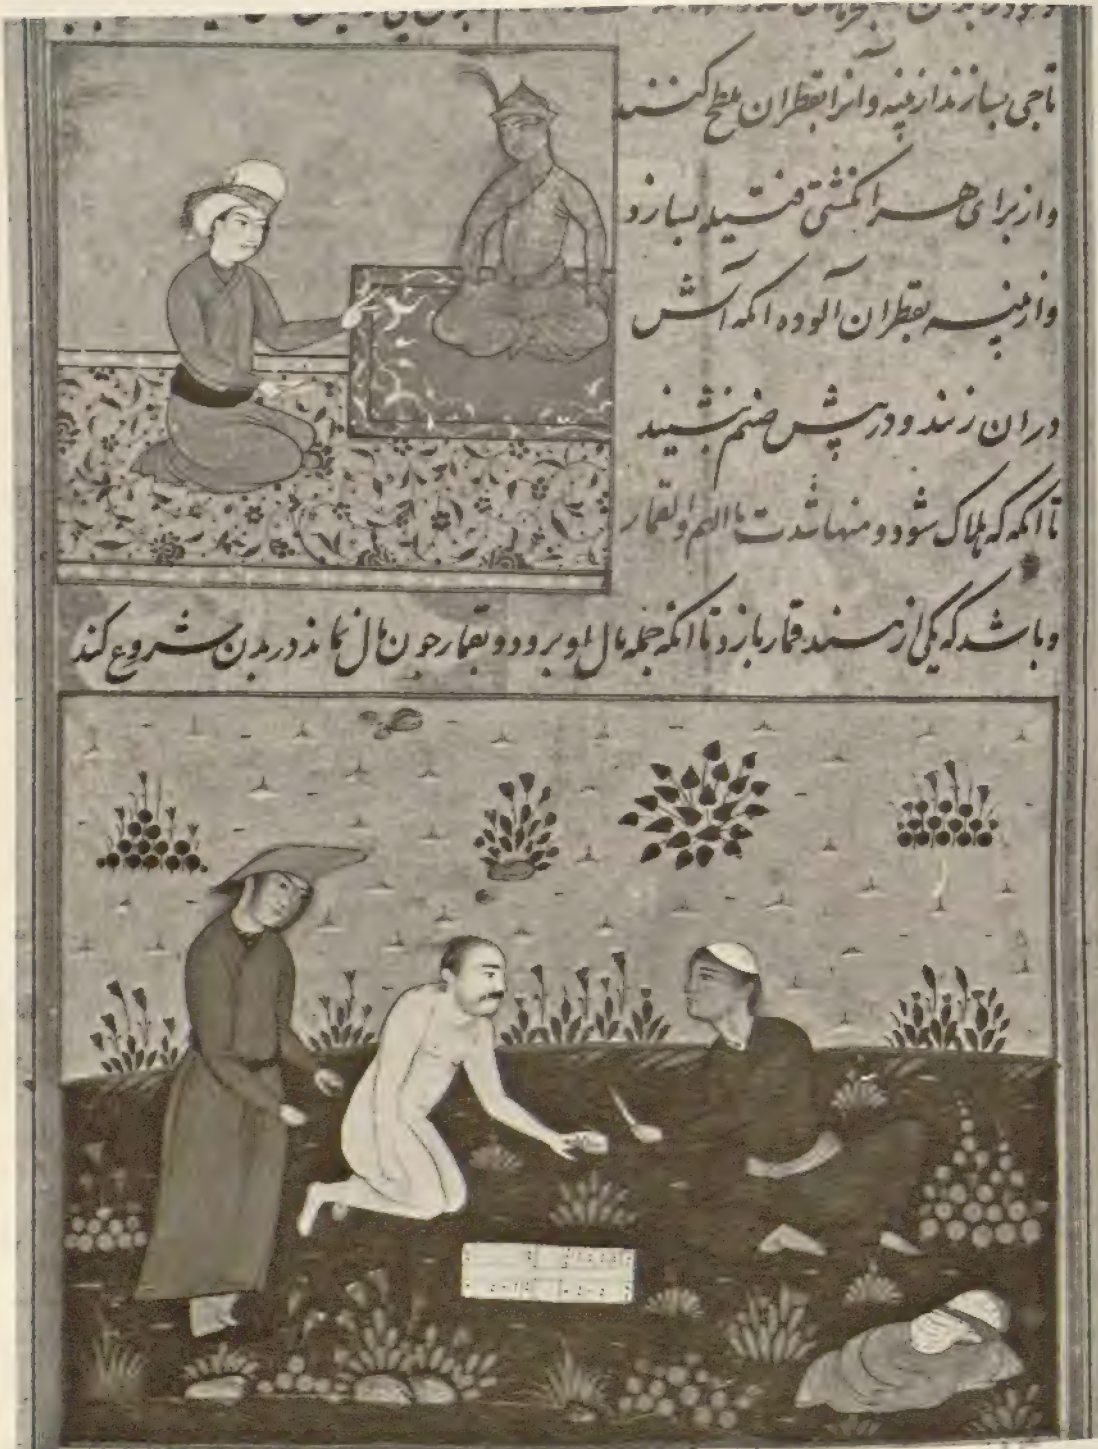 تاجی بسازند از پنبه و آنرا بقطران ملطخ کنند
و از برای هر انکشتی فتیله بسازد
و از پنبه بقطران آلوده انکه آتش
در ان زنند و در پیش صنم بنشیند
تا انکه که هلاک شود و منها شدت بالهم و القمار
و باشد که یکی از هند قمار بازد تا انکه جمله مال او برود و بقمار جون مال نماند در بدن شروع کند